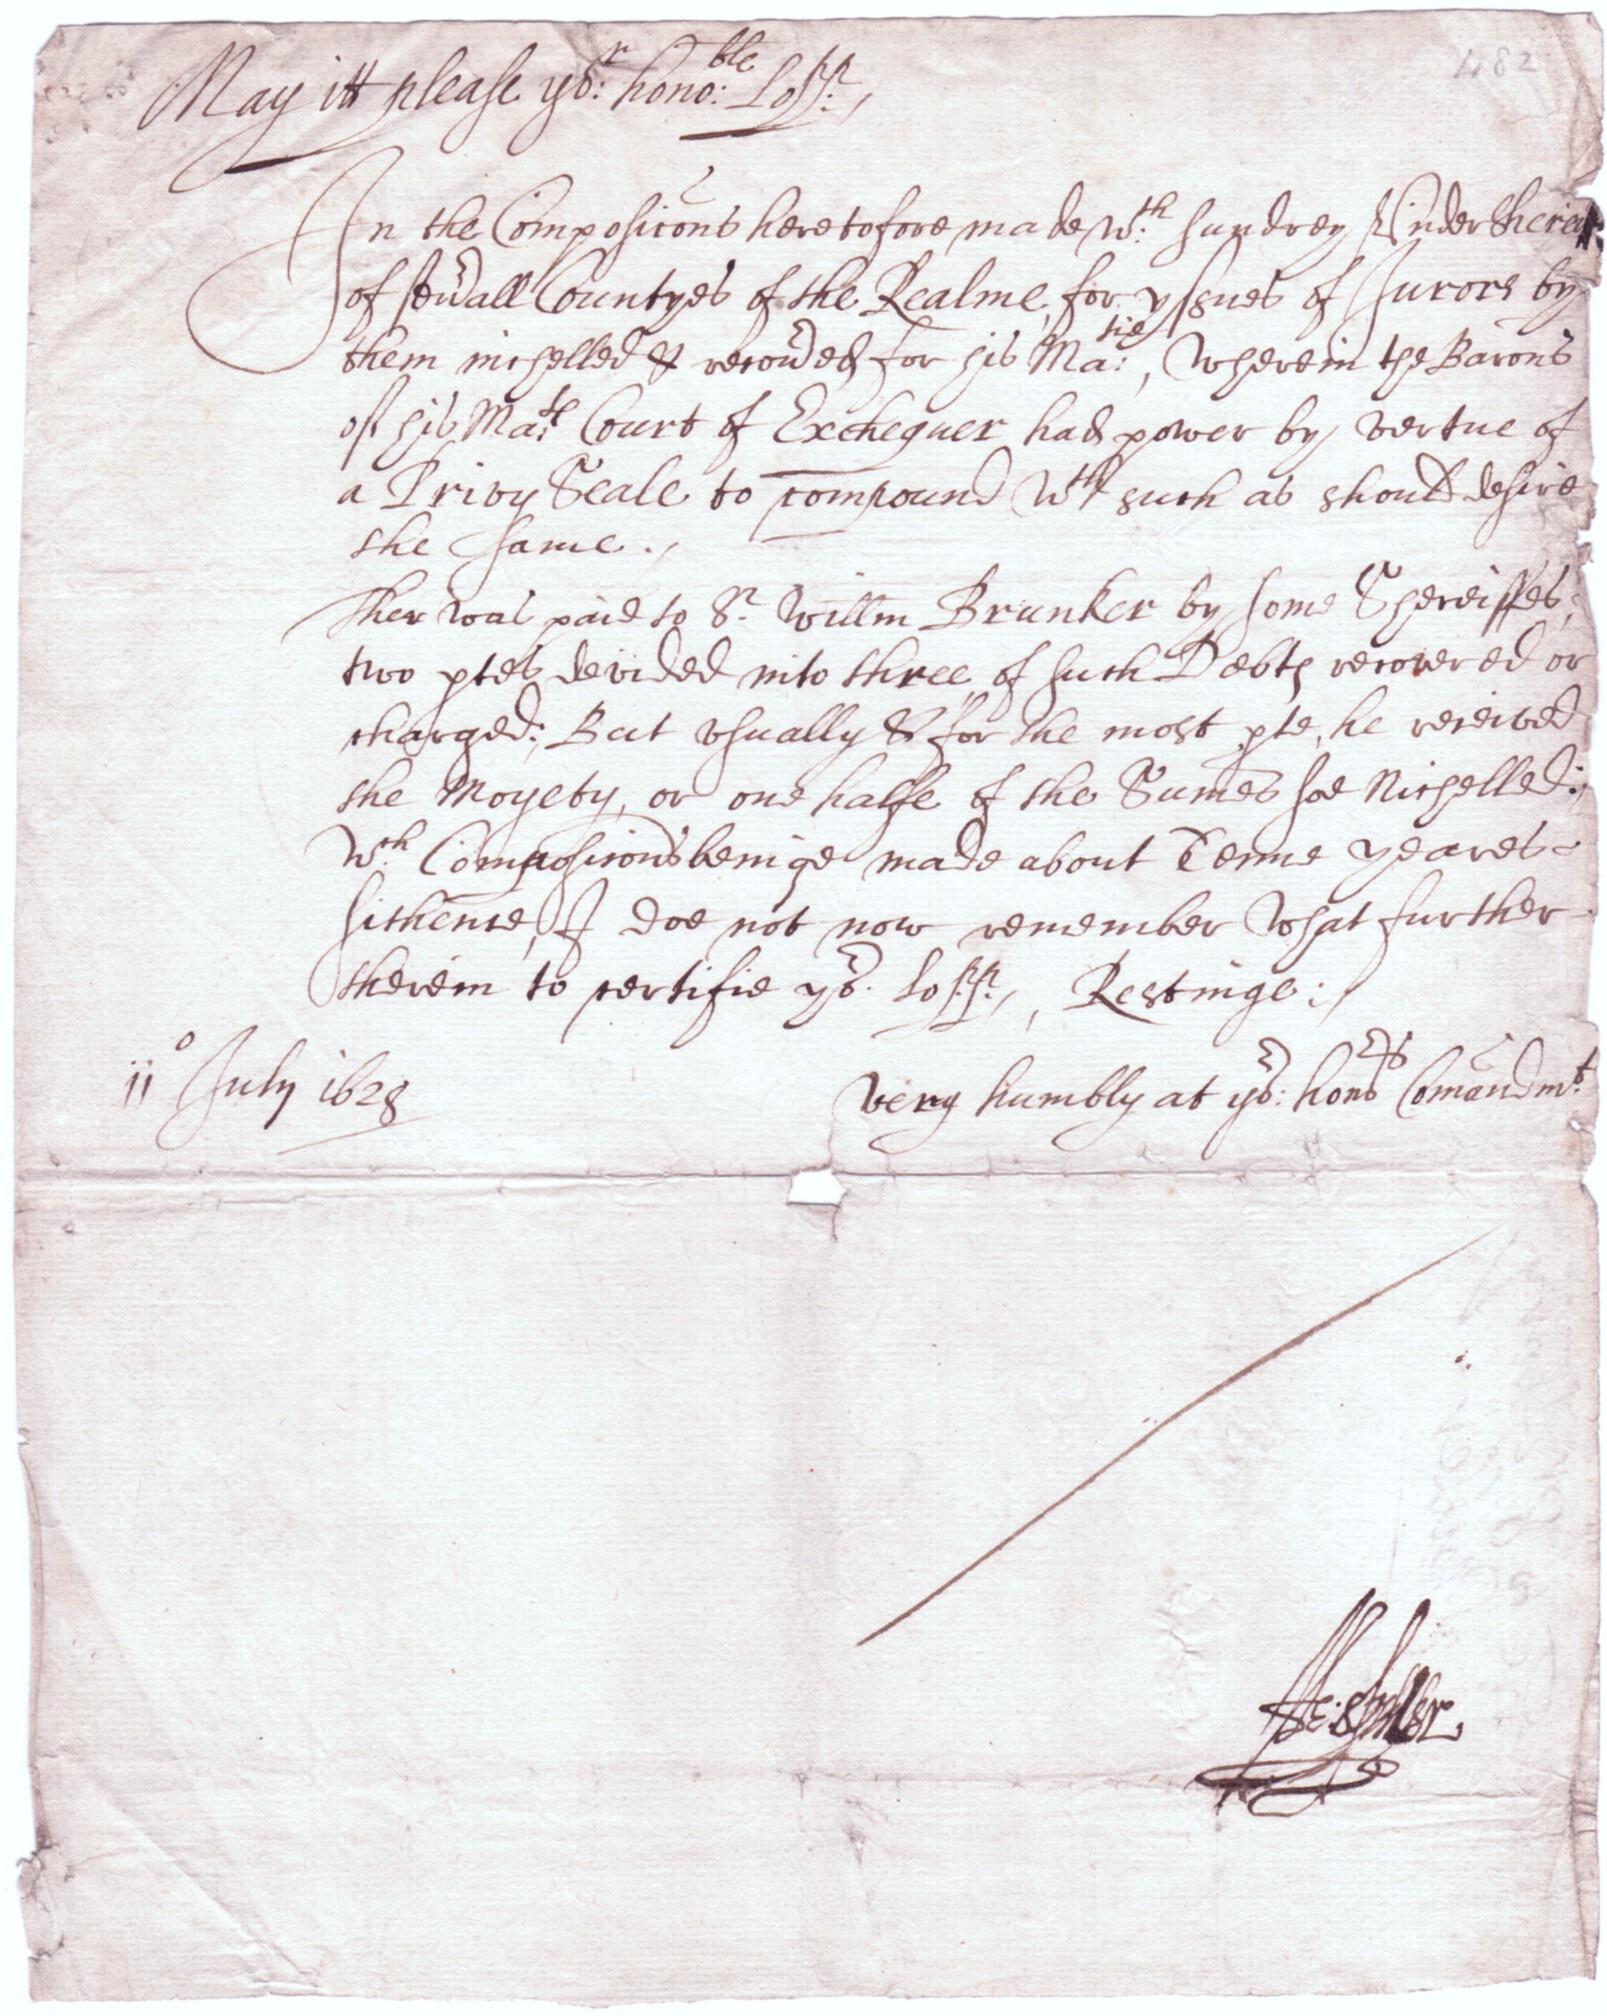 482
May itt please yor: honoble: Lopp:,
In the Composicons heretofore made wth: sundrey Vnder Sherei
of seu'all Countyes of the Realme, for yssues of Jurors by
them nichelled & recou'ed for his Matie:, wherein the Barons
of his Mats: Court of Exchequer had power by vertue of
a Privy Seale to compound wth such as should desire
the same.,
Ther was paid to Sr. Willm Brunker by some Shereiffes,
two ptes devided into three, of such Debts recovered or
charged: But vsually & for the most pte, he received
the Moyety, or one halfe of the Sumes soe Nichelled:,
Wch: Composicons beinge made about Tenne yeares
sithence, I doe not now remember what further
therein to certifie yor. Lopp:, Restinge:,
11o July 1628
very humbly at yor: honors Comandmt: